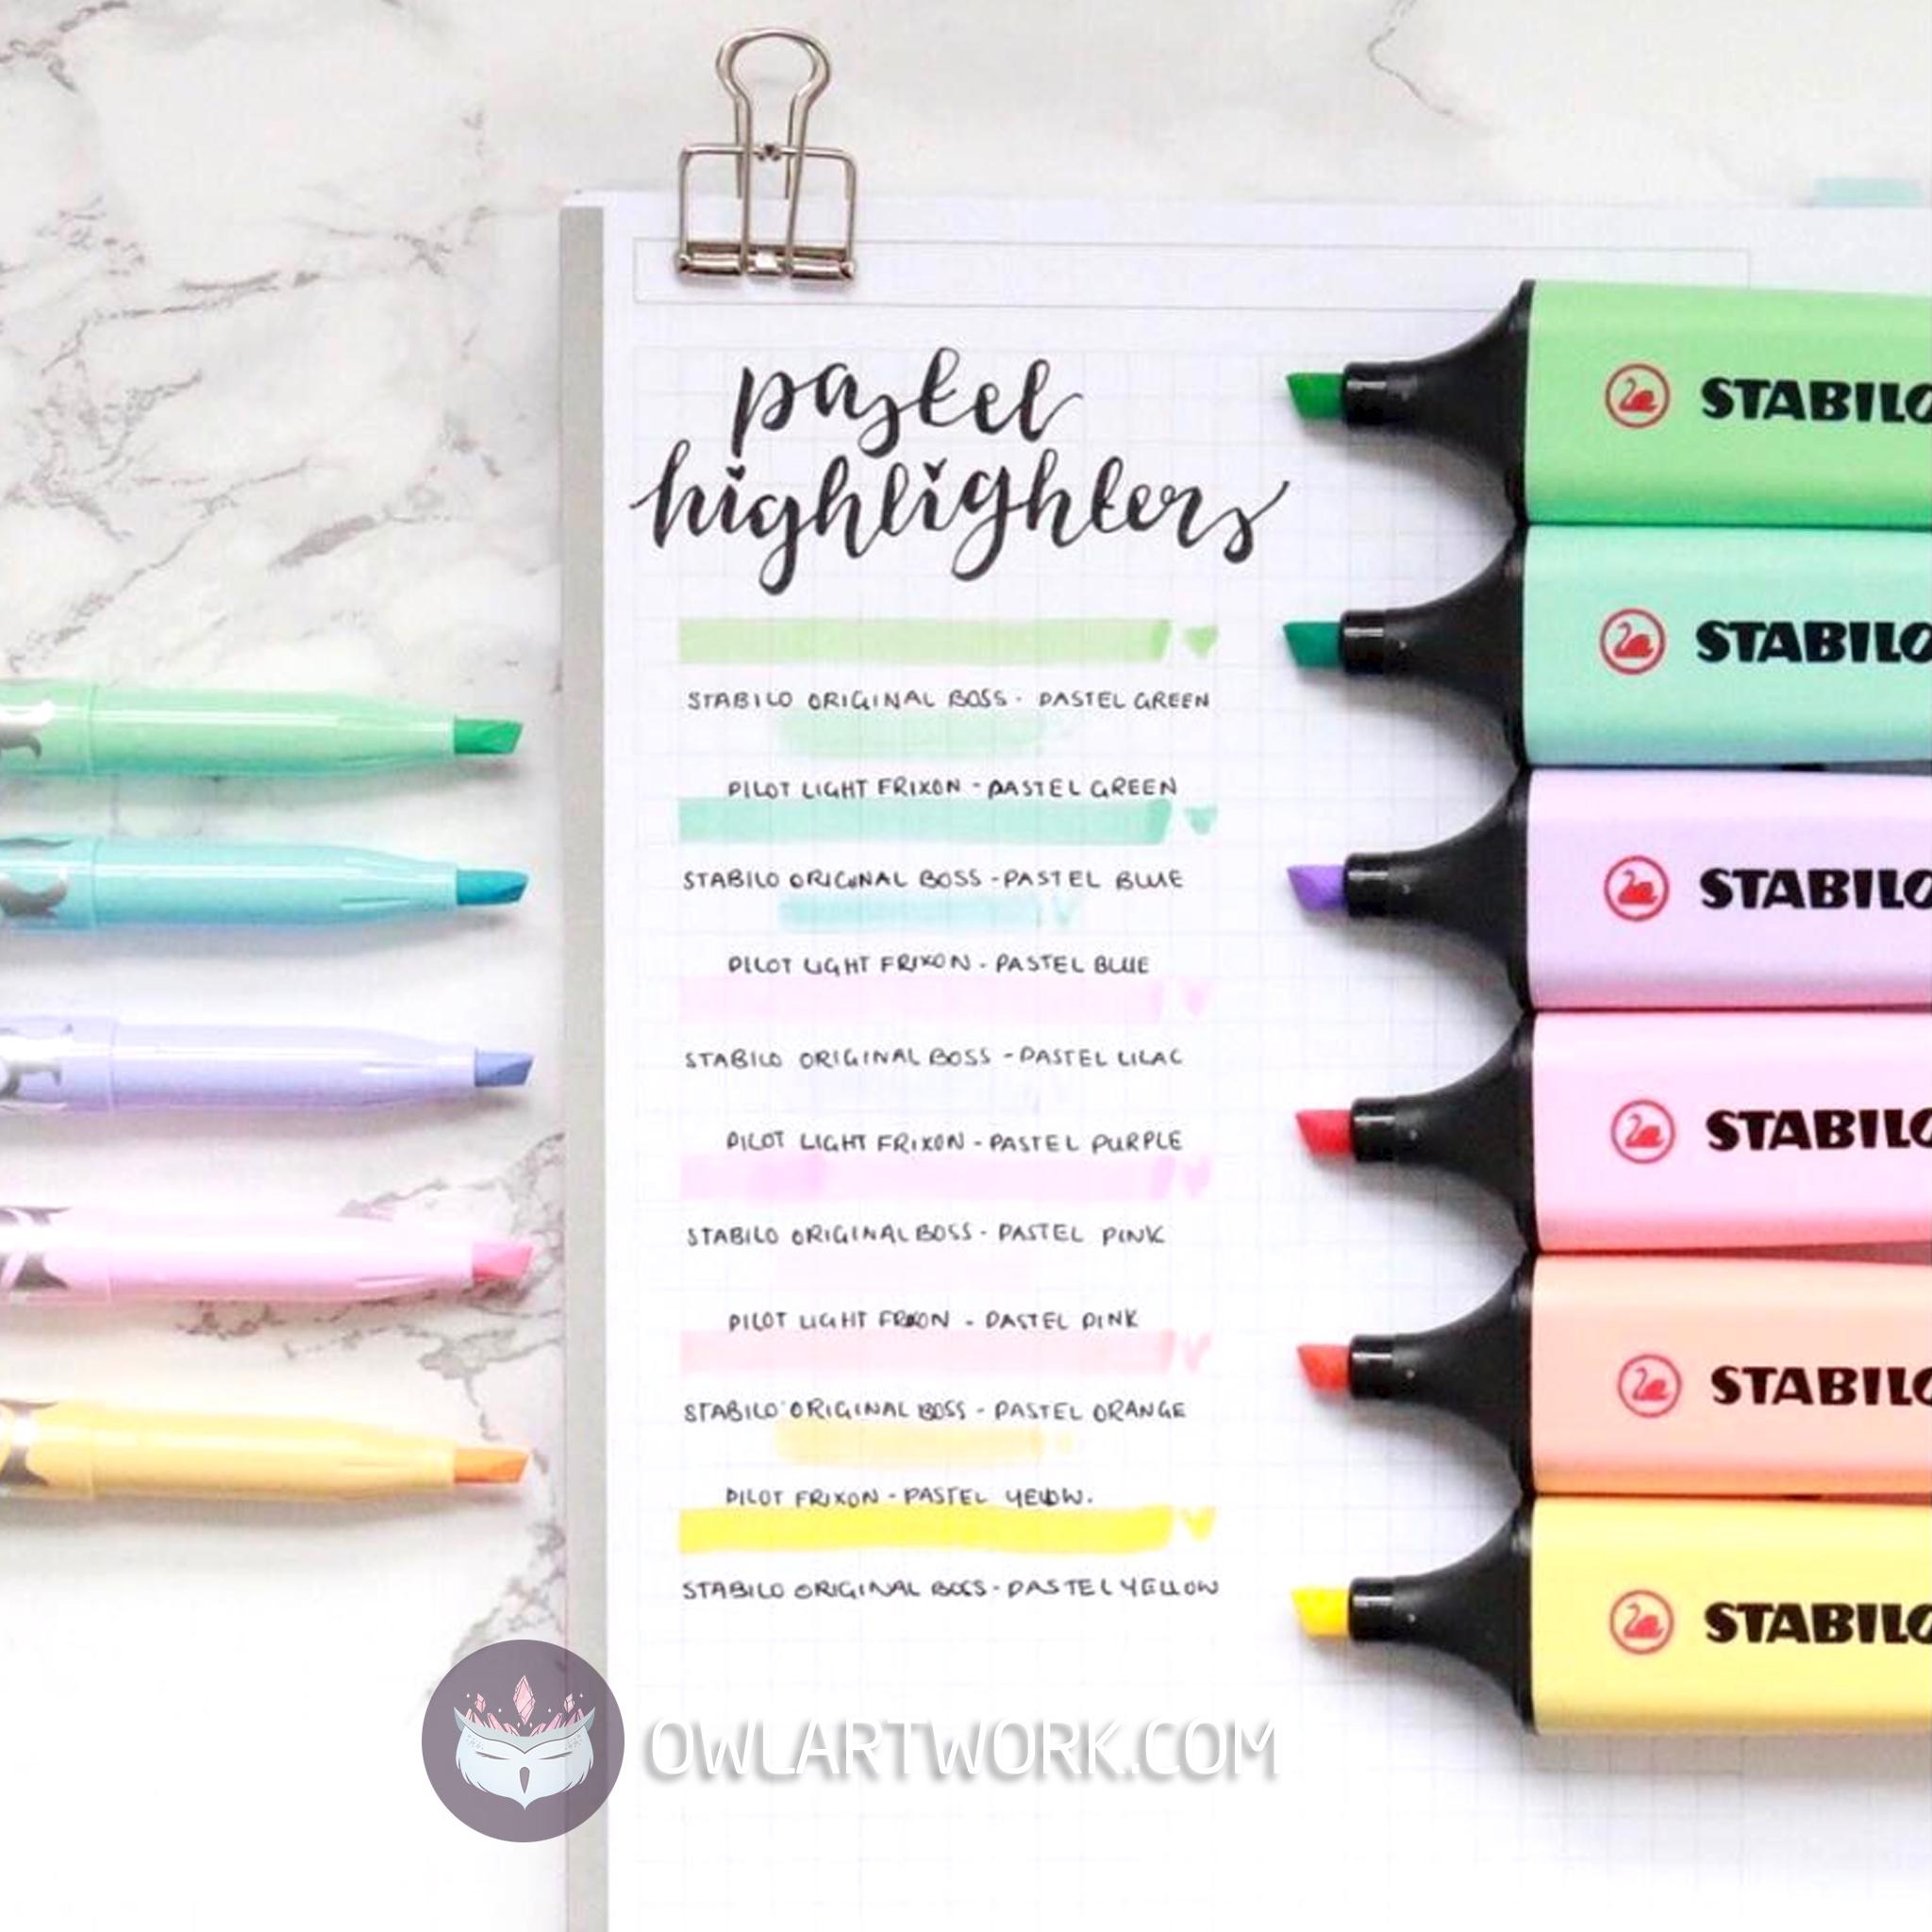 pastel
highlighters
STABILO ORIGINAL BOSS - PASTEL GREEN
PILOT LIGHT FRIXON - PASTEL GREEN
STABILO ORIGINAL BOSS - PASTEL BLUE
PILOT LIGHT FRIXON - PASTEL BLUE
STABILO ORIGINAL BOSS - PASTEL LILAC
PILOT LIGHT FRIXON - PASTEL PURPLE
STABILO ORIGINAL BOSS - PASTEL PINK
PILOT LIGHT FRIXON - PASTEL PINK
STABILO ORIGINAL BOSS - PASTEL ORANGE
PILOT FRIXON - PASTEL YELLOW.
STABILO ORIGINAL BOSS - PASTEL YELLOW
STABILO
STABILO
STABILO
STABILO
STABILO
STABILO
OWLARTWORK.COM